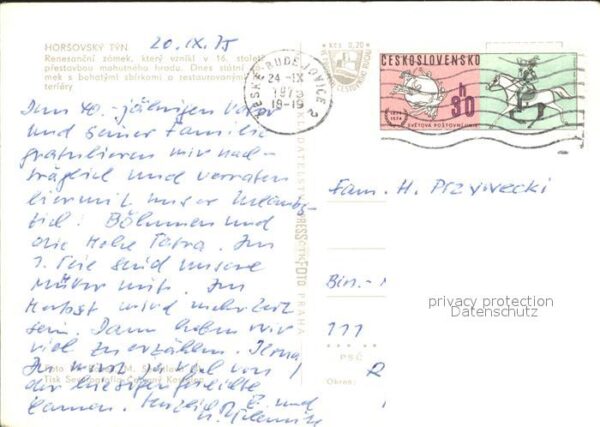 HORŠOVSKÝ TÝN
20.IX.75
Renesanční zámek, který vznikl v 16. století
přestavbou mohutného hradu. Dnes státní zá-
mek s bohatými sbírkami a restaurovanými in-
teriéry
Kčs 0,20
ČESKÉ BUDĚJOVICE 2
24.-IX
1975
18-19
ČESKOSLOVENSKO
30 h
1874
1974
SVĚTOVÁ POŠTOVNÍ UNIE
Dem 40.-jährigen Vater
und seiner Familie
gratulieren wir nach-
träglich und verraten
hiermit unser Urlaubs-
ziel: Böhmen und
die Hohe Tatra. Im
1. Teil sind unsere
Mütter mit. Im
Herbst wird mehr Zeit
sein. Dann haben wir
viel zu erzählen.
PRESSFOTO PRAHA
Fam. H. Przywecki
Bln.-
111
PSČ
Okres:
privacy protection
Datenschutz
Foto
M.
Tisk
Herzlich
und